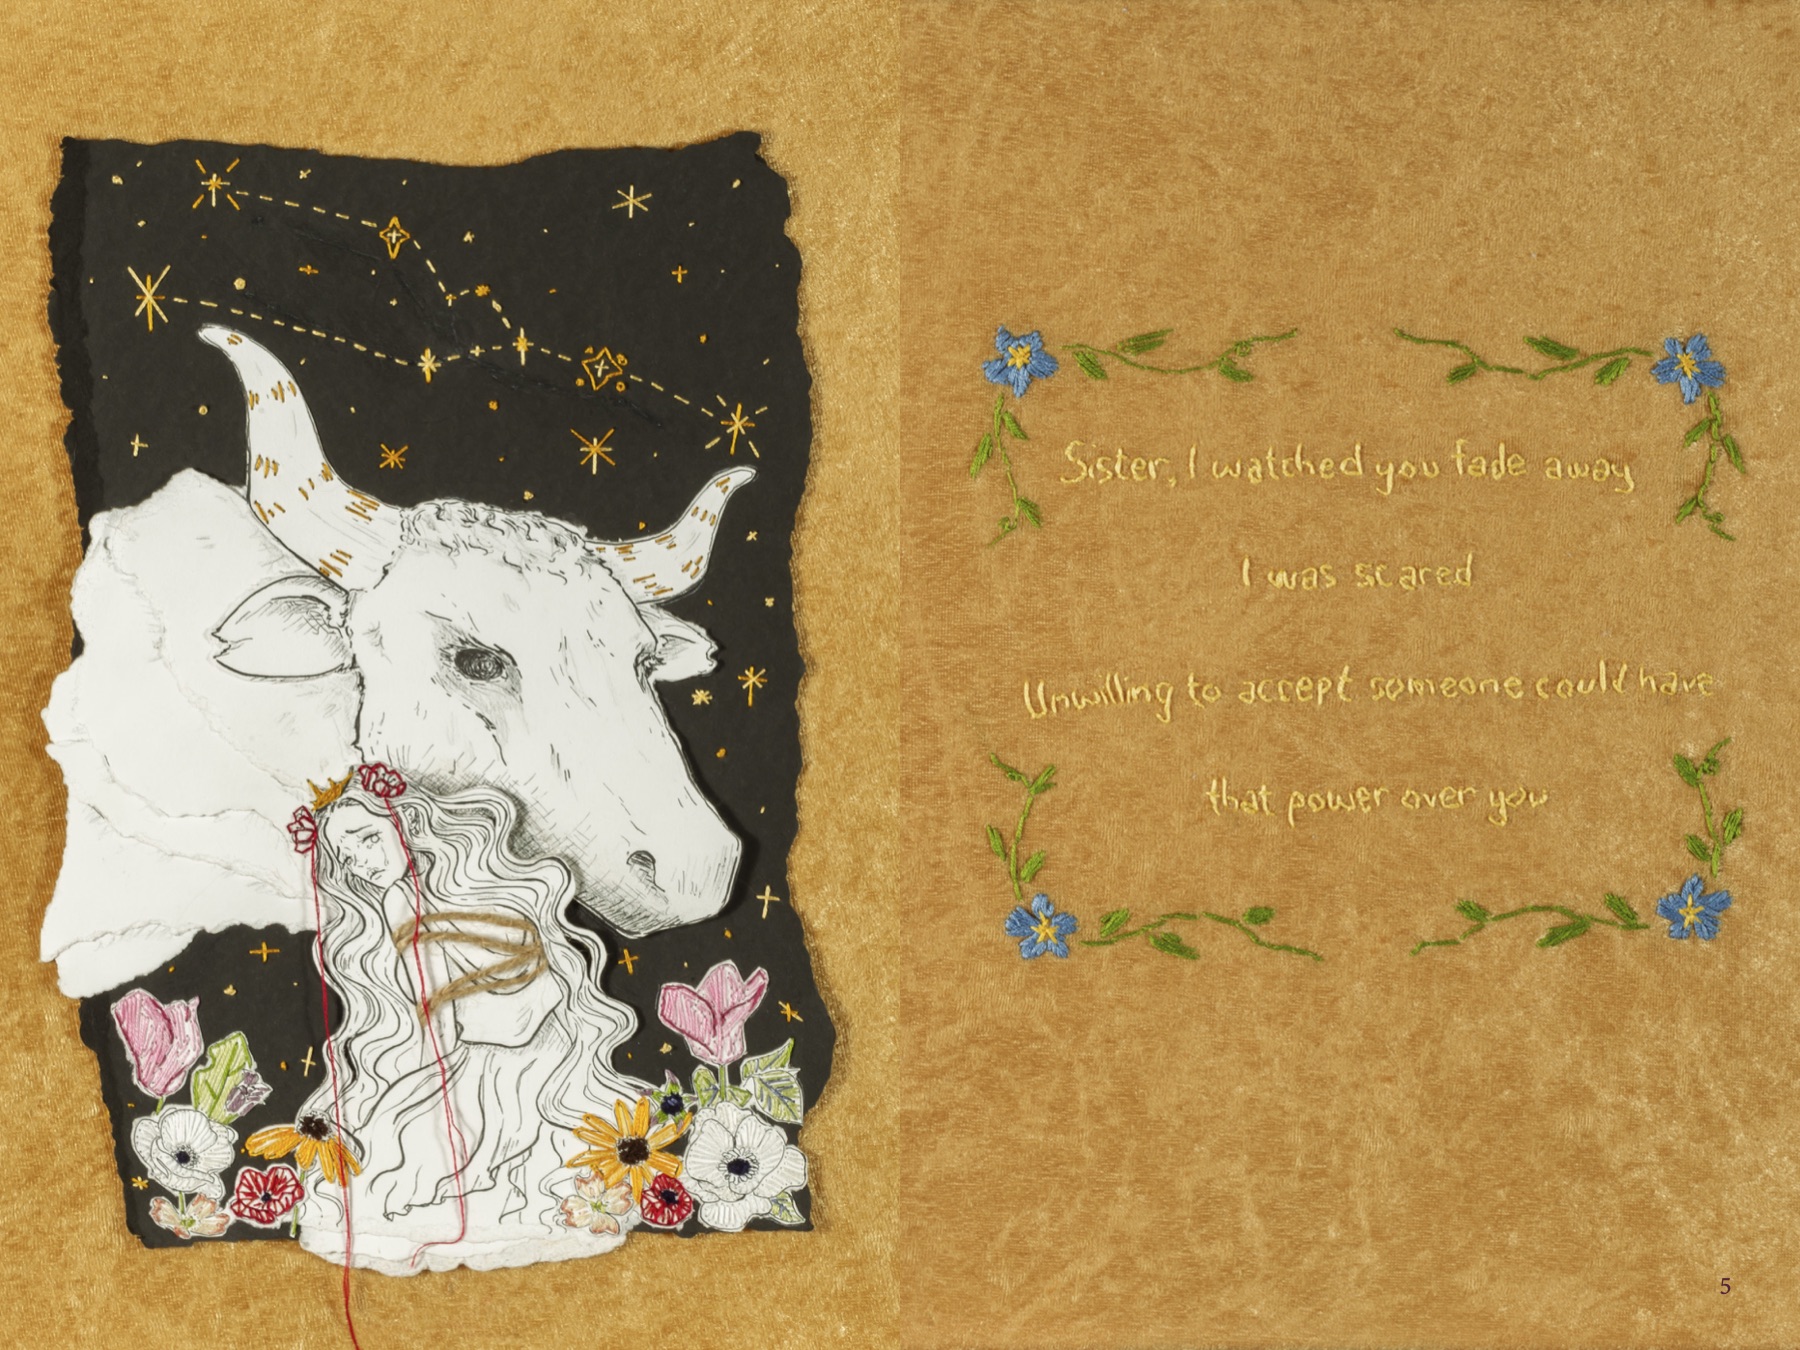 Sister, I watched you fade away
I was scared
Unwilling to accept someone could have
that power over you
5